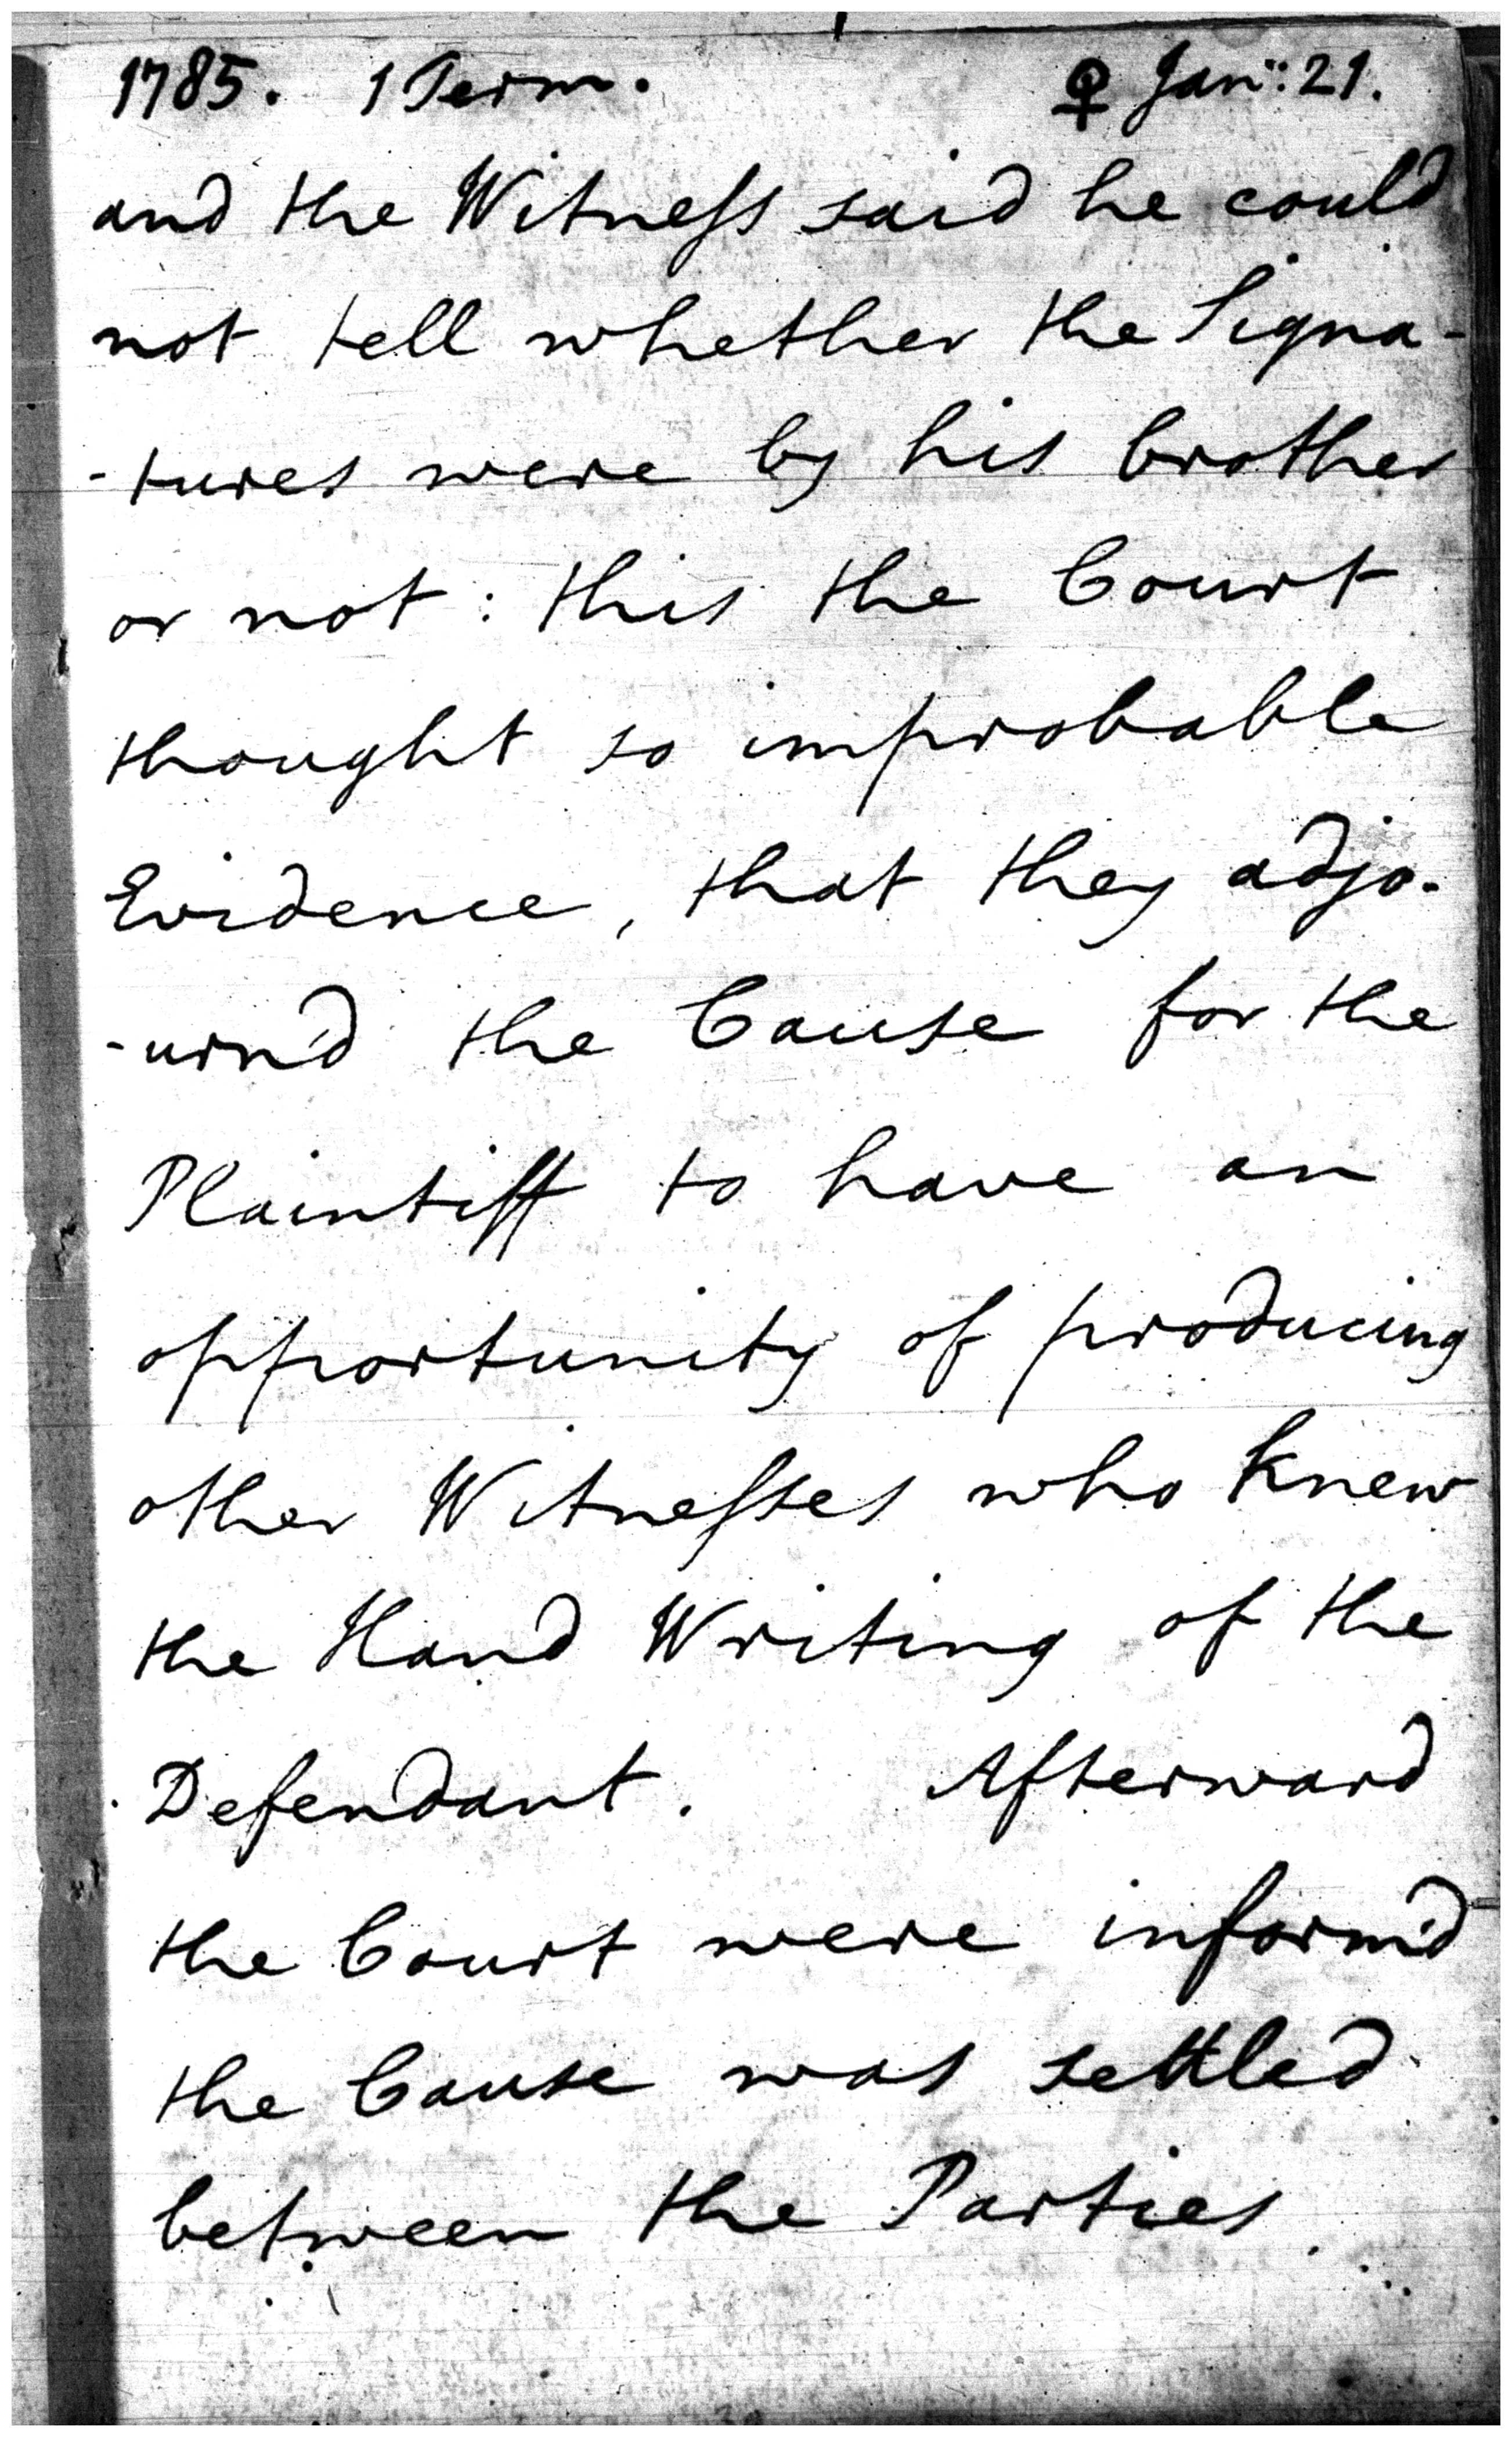 1785. 1 Term. ♀ Jan:: 21.
and the Witneſs said he could
not tell whether the Signa-
-tures were by his brother
or not: this the Court
thought so improbable
Evidence, that they adjo-
-urn'd the Cause for the
Plaintiff to have an
opportunity of producing
other Witneſses who knew
the Hand Writing of the
Defendant. Afterward
the Court were inform'd
the Cause was settled
between the Parties